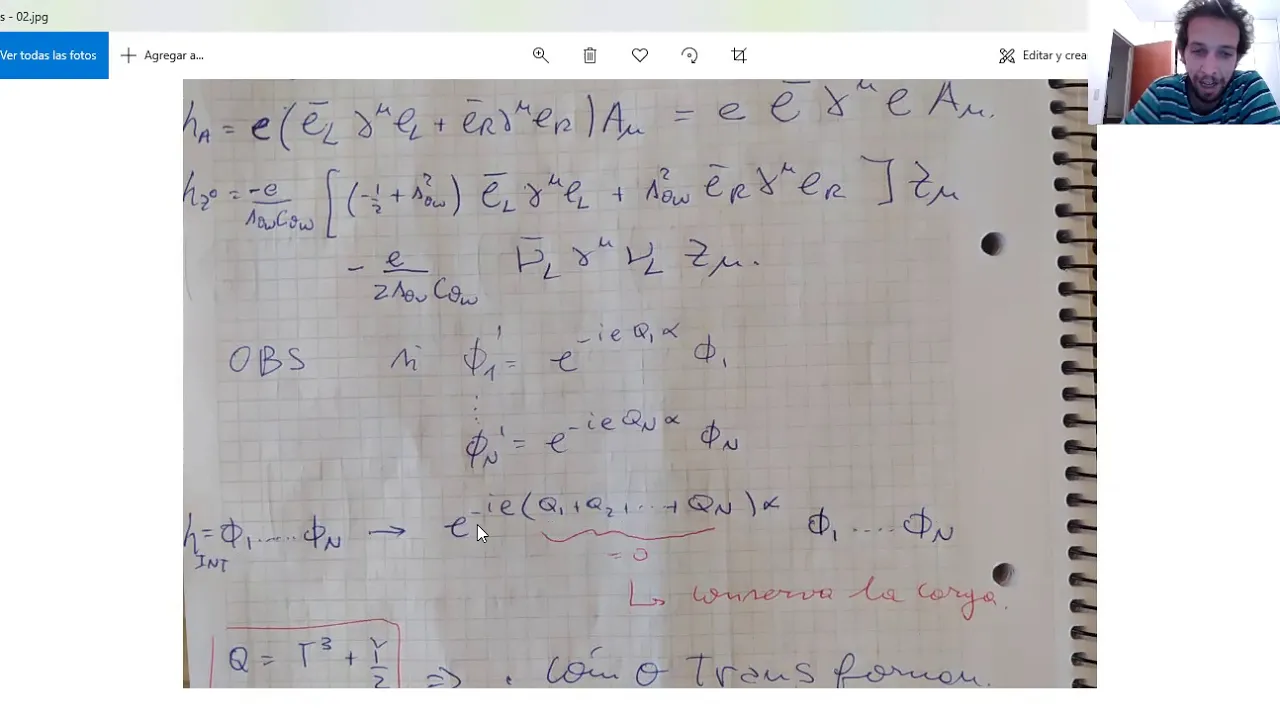 s - 02.jpg
Ver todas las fotos
Agregar a...
Editar y crea
h_A = e(ē_L γ^μ e_L + ē_R γ^μ e_R) A_μ = e ē γ^μ e A_μ.
h_Z⁰ = -e/(s_θw c_θw) [(-1/2 + s²_θw) ē_L γ^μ e_L + s²_θw ē_R γ^μ e_R] Z_μ
- e/(2 s_θw c_θw) ν̄_L γ^μ ν_L Z_μ.
OBS si ϕ₁' = e^{-ieQ₁α} ϕ₁
⋮
ϕ_N' = e^{-ieQ_Nα} ϕ_N
h_INT = ϕ₁.....ϕ_N → e^{-ie(Q₁+Q₂+...+Q_N)α} ϕ₁....ϕ_N
= 0
↳ conserva la carga.
Q = T³ + Y/2 ⇒ . Cómo Transforman.